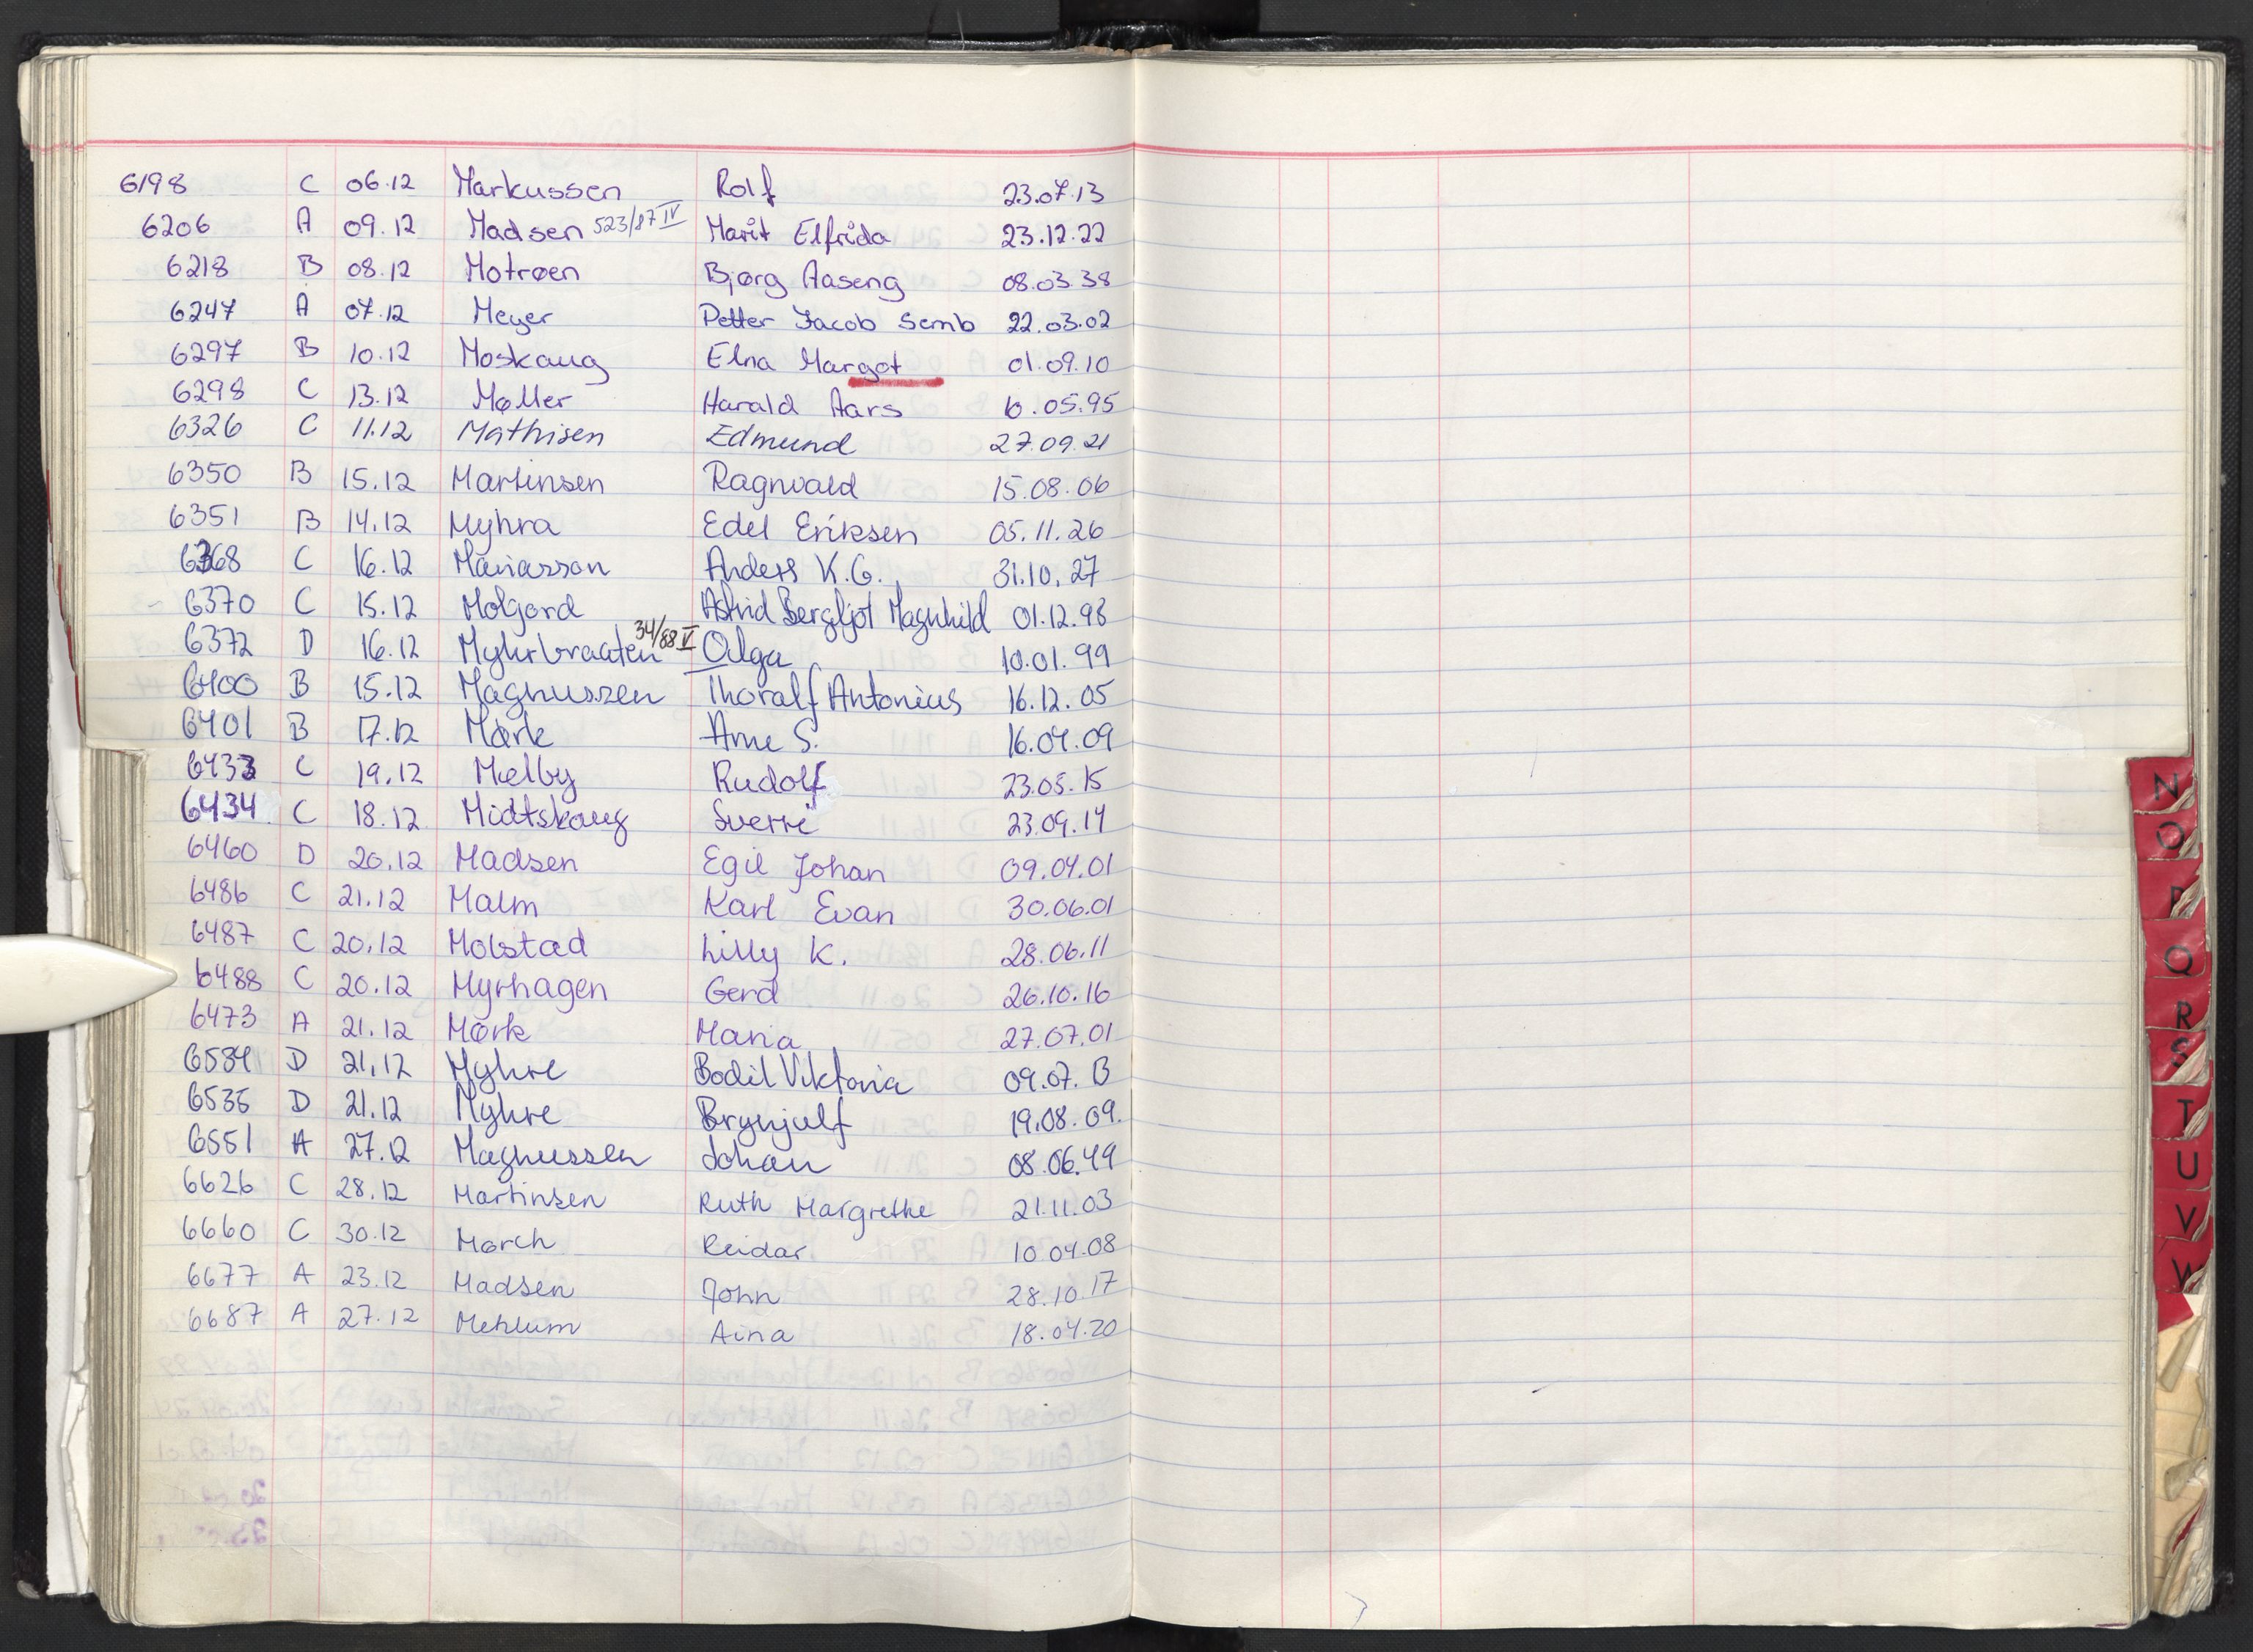 6198 C 06.12 Markussen Rolf 23.07.13
6206 A 09.12 Madsen 523/87 IV Marit Elfrida 23.12.22
6218 B 08.12 Motrøen Bjørg Aaseng 08.03.38
6247 A 07.12 Meyer Petter Jacob Semb 22.03.02
6297 B 10.12 Moskaug Elna Margot 01.09.10
6298 C 13.12 Møller Harald Aars 10.05.95
6326 C 11.12 Mathisen Edmund 27.09.21
6350 B 15.12 Martinsen Ragnvald 15.08.06
6351 B 14.12 Myhra Edel Eriksen 05.11.26
6368 C 16.12 Mariasson Anders K.G. 31.10.27
6370 C 15.12 Molgjord Astrid Bergljot Magnhild 01.12.98
6372 D 16.12 Myhrbraaten 34/88 V Olga 10.01.99
6400 B 15.12 Magnussen Thoralf Antonius 16.12.05
6401 B 17.12 Mørk Arne S. 16.04.09
6433 C 19.12 Melby Rudolf 23.05.15
6434 C 18.12 Midtskaug Sverre 23.09.14
6460 D 20.12 Madsen Egil Johan 09.04.01
6486 C 21.12 Malm Karl Evan 30.06.01
6487 C 20.12 Molstad Lilly K. 28.06.11
6488 C 20.12 Myrhagen Gerd 26.10.16
6473 A 21.12 Mørk Maria 27.07.01
6534 D 21.12 Myhre Bodil Viktoria 09.07.13
6535 D 21.12 Myhre Brynjulf 19.08.09.
6551 A 27.12 Magnussen Johan 08.06.49
6626 C 28.12 Martinsen Ruth Margrethe 21.11.03
6660 C 30.12 Mørch Reidar 10.04.08
6677 A 23.12 Madsen John 28.10.17
6687 A 27.12 Mehlum Aina 18.04.20
N
O
P
Q
R
S
T
U
V
W